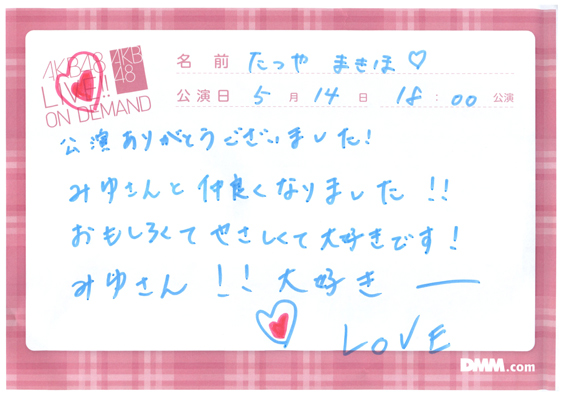 AKB48
LIVE!!
ON DEMAND
AKB
48
名前 たつや まきほ♡
公演日 5月14日 18:00公演
公演ありがとうございました!
みゆさんと仲良くなりました!!
おもしろくてやさしくて大好きです!
みゆさん!!大好きー
LOVE
DMM.com